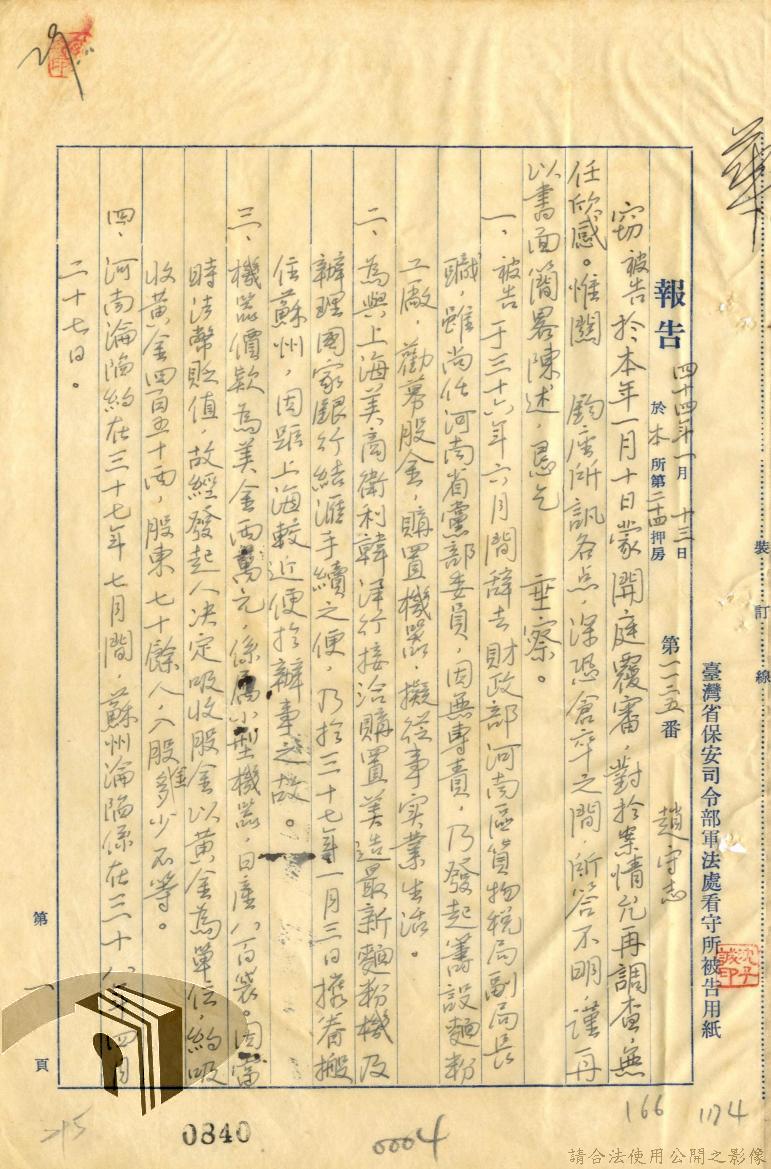 裝訂線
臺灣省保安司令部軍法處看守所被告用紙
報告 四十四年一月十三日 於本所第二十四押房 第一一三五番 趙守志
竊被告於本年一月十日蒙開庭覆審,對於案情允再調查,無
任欣感。惟關 鈞座所訊各点,深恐倉卒之間,所答不明,謹再
以書面簡畧陳述,懇乞 垂察。
一、被告于三十六年六月間辞去財政部河南區貨物稅局副局長
職,雖尚任河南省黨部委員,因無專責,乃發起籌設麵粉
工廠,勸募股金,購置機器,擬從事实業生活。
二、為與上海美商衛利韓洋行接洽購置美造最新麵粉機及
辦理國家銀行結滙手續之便,乃於三十七年一月三日携眷搬
住蘇州,因距上海較近便於辦事之故。
三、機器價款為美金兩萬元,係屬小型機器,日產八百袋。因當
時法幣貶值,故經發起人决定吸收股金以黃金為單位,約吸
收黃金四百五十両,股東七十餘人,入股金多少不等。
四、河南淪陷約在三十七年七月間,蘇州淪陷係在三十八年四月
二十七日。
第一頁
166
1174
0840
0004
215
請合法使用公開之影像